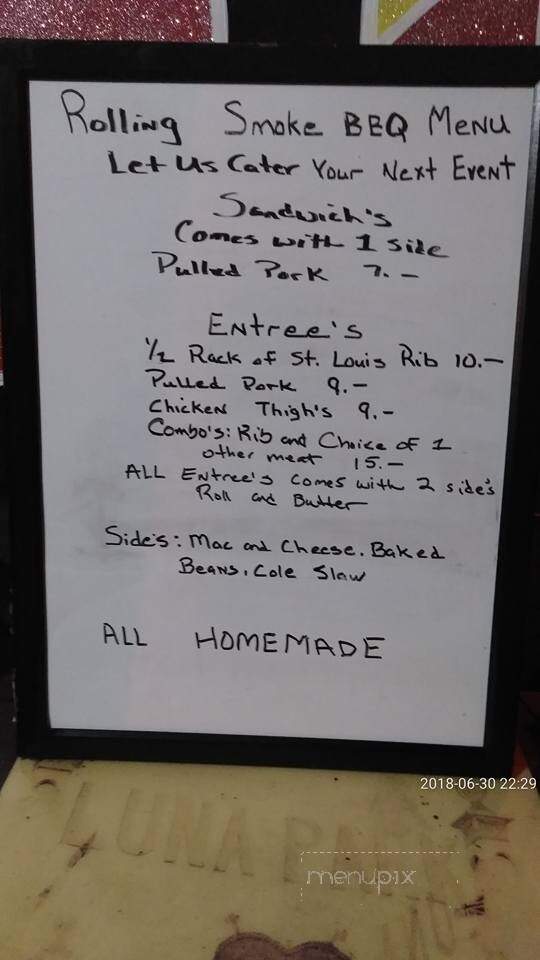 Rolling Smoke BBQ Menu
Let Us Cater Your Next Event
Sandwich's
Comes with 1 Side
Pulled Pork 7.-
Entree's
1/2 Rack of St. Louis Rib 10.-
Pulled Pork 9.-
Chicken Thigh's 9.-
Combo's: Rib and Choice of 1
other meat 15.-
ALL Entree's comes with 2 side's
Roll and Butter
Side's: Mac and Cheese. Baked
Beans, Cole Slaw
ALL HOMEMADE
2018-06-30 22:29
LUNA
menupix